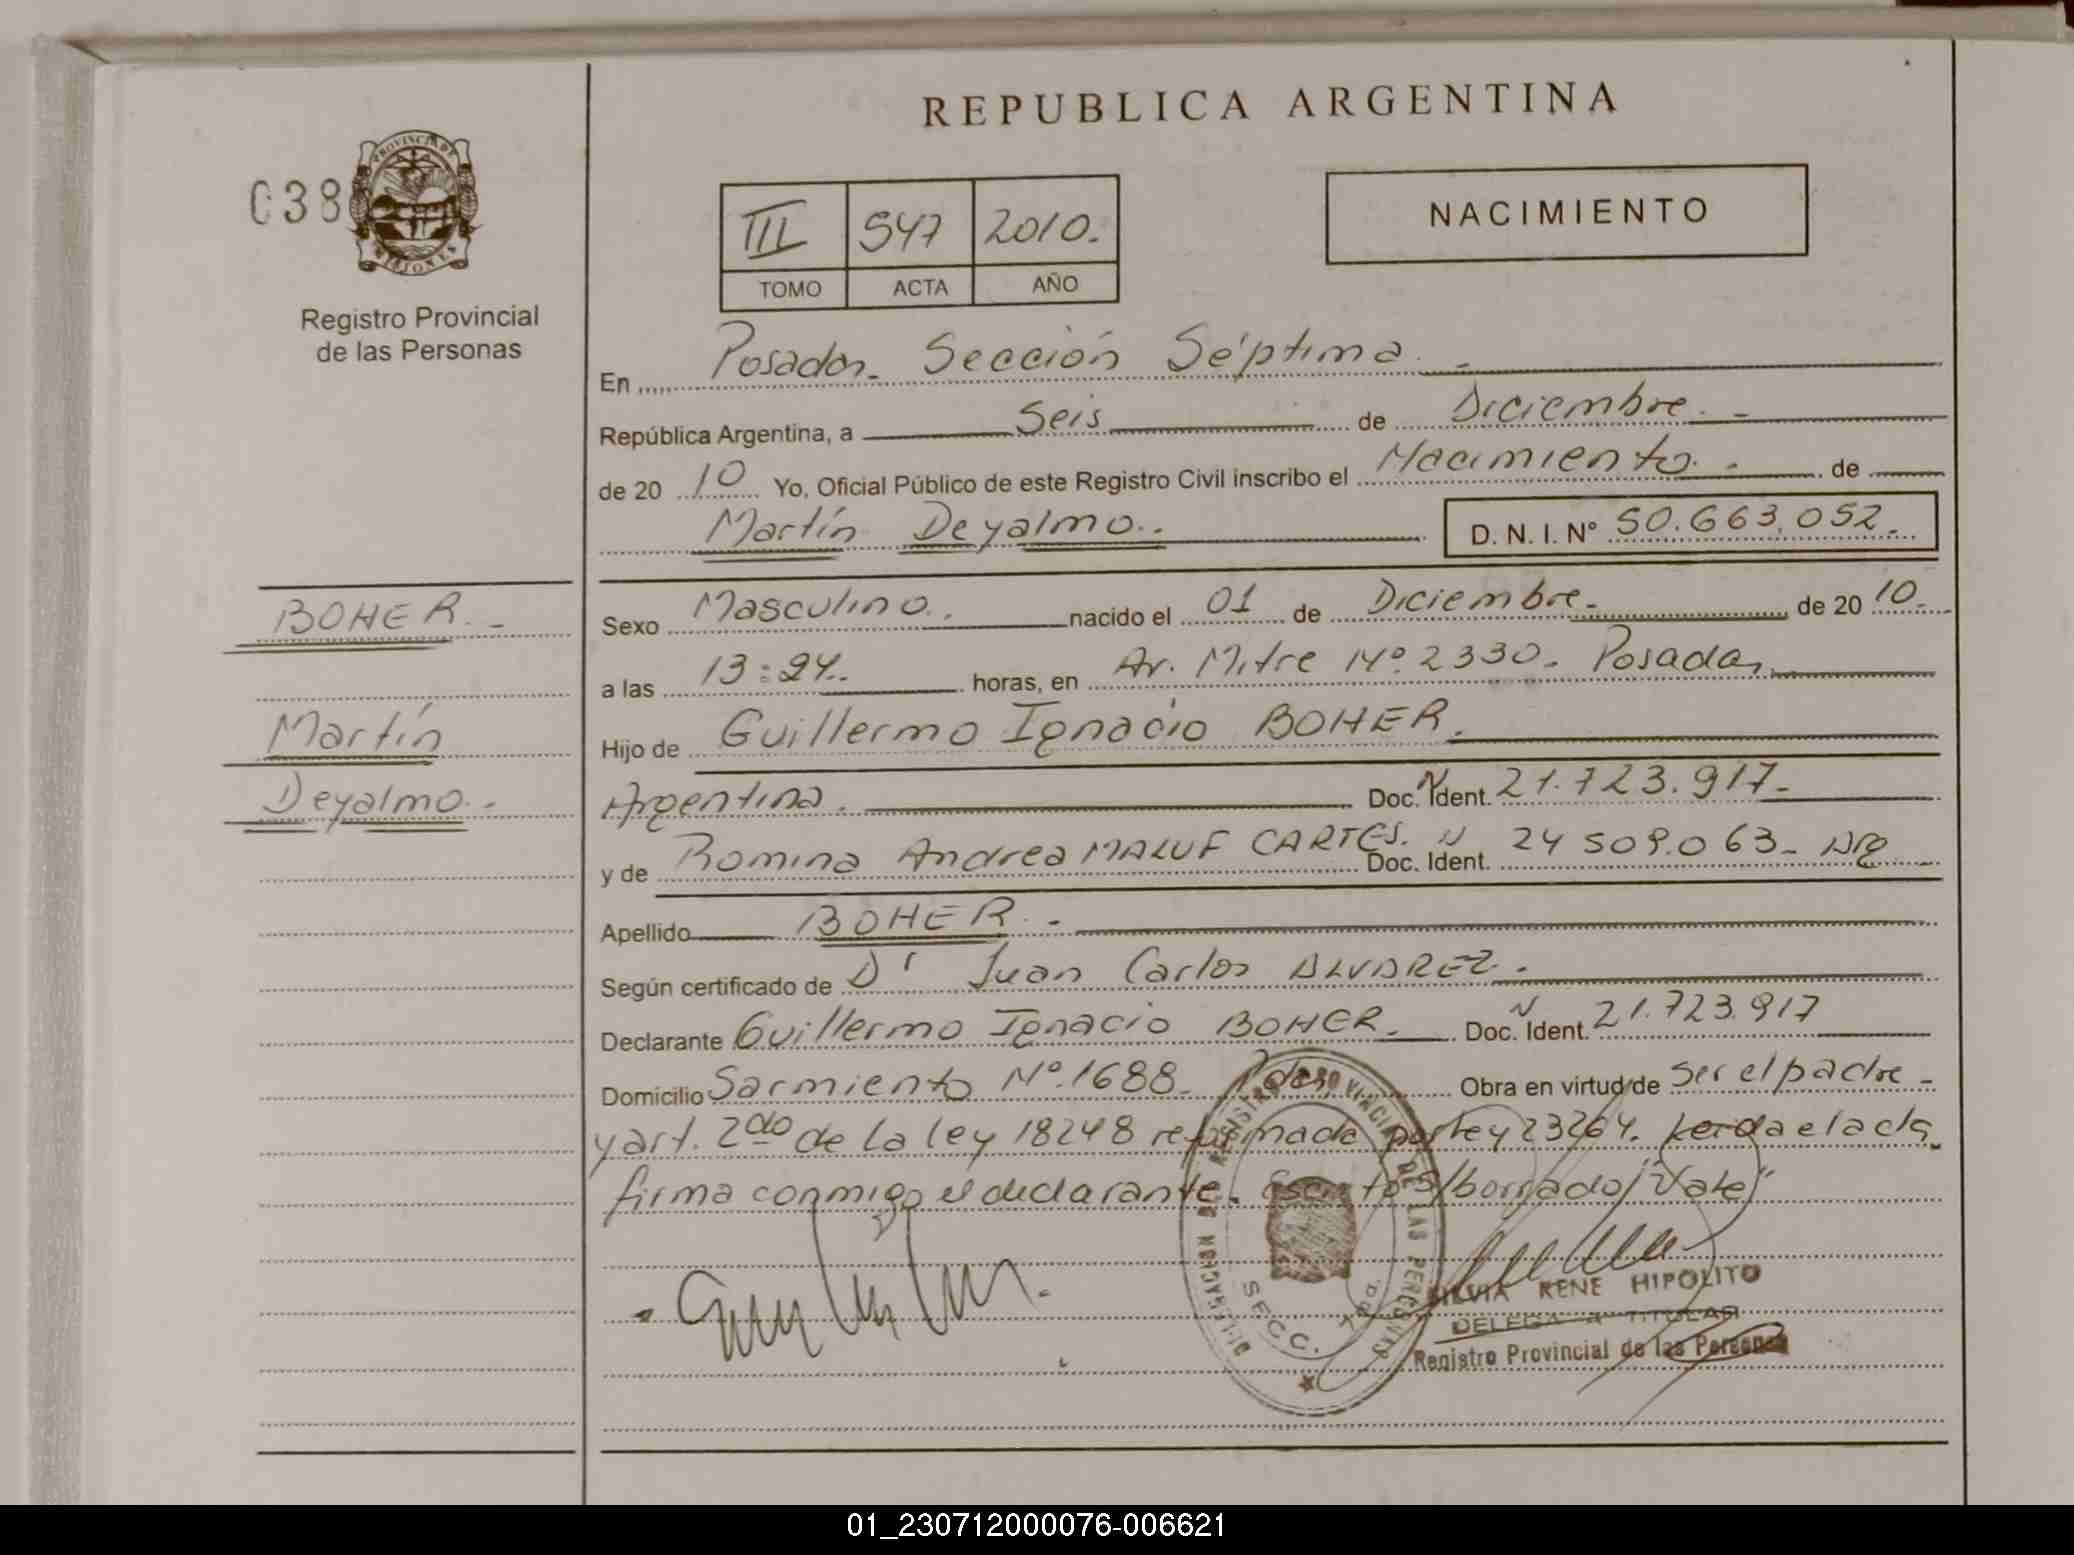 REPUBLICA ARGENTINA
038
PROVINCIA DE MISIONES
Registro Provincial
de las Personas
III 547 2010.
TOMO ACTA AÑO
NACIMIENTO
En Posadas. Sección Séptima.
República Argentina, a Seis de Diciembre.
de 2010 Yo, Oficial Público de este Registro Civil inscribo el Nacimiento. de
Martín Deyalmo. D. N. I. Nº 50.663.052.
BOHER.
Martín
Deyalmo.
Sexo Masculino. nacido el 01 de Diciembre. de 2010.
a las 13:24. horas, en Av. Mitre Nº 2330. Posadas,
Hijo de Guillermo Ignacio BOHER.
Argentina. Doc. N Ident. 21.723.917.
y de Romina Andrea MALUF CARTES. N Doc. Ident. 24 509.063. Arg
Apellido BOHER.
Según certificado de Dr Juan Carlos ALVAREZ.
Declarante Guillermo Ignacio BOHER. Doc. N Ident. 21.723.917
Domicilio Sarmiento Nº.1688. Pdas, Obra en virtud de ser el padre
y art. 2do de la ley 18248 reformada por ley 23264. Leida el acta
firma conmigo el declarante. Escrito s/borrado/"Vale"
SILVIA RENE HIPOLITO
DELEGADA TITULAR
Registro Provincial de las Personas
DELEGACION REGISTRO PROVINCIAL DE LAS PERSONAS
SECC.
01_230712000076-006621